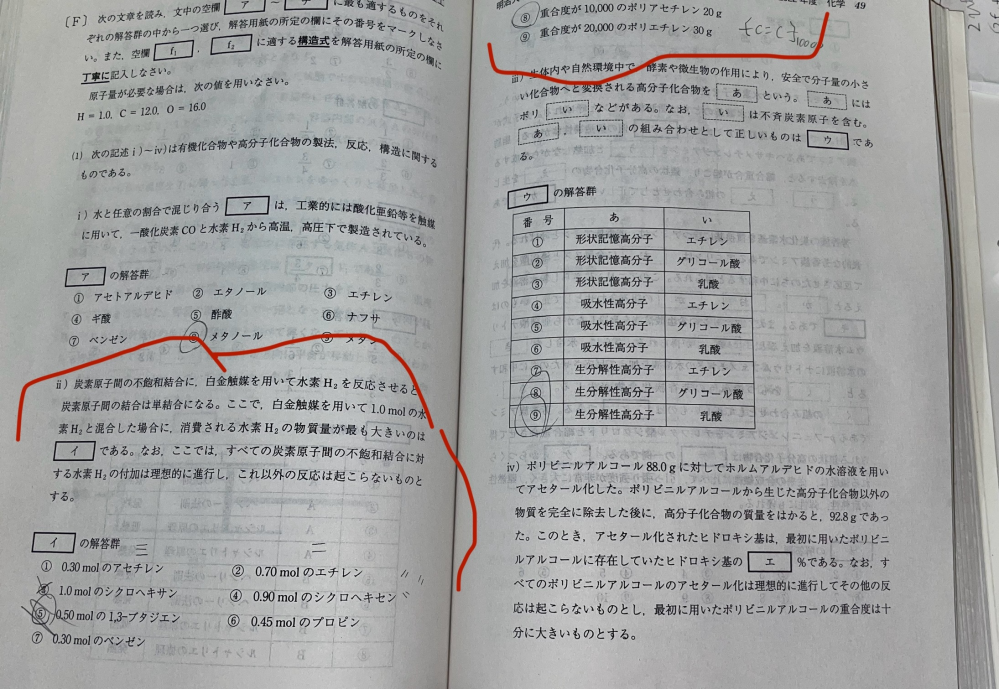 [F] 次の文章を読み,文中の空欄 ア ~ に最も適するものをそれ
ぞれの解答群の中から一つ選び,解答用紙の所定の欄にその番号をマークしなさ
い。また,空欄 f₁ , f₂ に適する構造式を解答用紙の所定の欄に
丁寧に記入しなさい。
原子量が必要な場合は,次の値を用いなさい。
H = 1.0, C = 12.0, O = 16.0
(1) 次の記述ⅰ)~ⅳ)は有機化合物や高分子化合物の製法,反応,構造に関する
ものである。
ⅰ)水と任意の割合で混じり合う ア は,工業的には酸化亜鉛等を触媒
に用いて,一酸化炭素COと水素H₂から高温,高圧下で製造されている。
ア の解答群
① アセトアルデヒド ② エタノール ③ エチレン
④ ギ酸 ⑤ 酢酸 ⑥ ナフサ
⑦ ベンゼン ⑧ メタノール ⑨ メタン
ⅱ)炭素原子間の不飽和結合に,白金触媒を用いて水素H₂を反応させると
炭素原子間の結合は単結合になる。ここで,白金触媒を用いて1.0molの水
素H₂と混合した場合に,消費される水素H₂の物質量が最も大きいのは
イ である。なお,ここでは,すべての炭素原子間の不飽和結合に対
する水素H₂の付加は理想的に進行し,これ以外の反応は起こらないものと
する。
イ の解答群
三 二
① 0.30 molのアセチレン ② 0.70 molのエチレン
③ 1.0 molのシクロヘキサン ④ 0.90 molのシクロヘキセン
⑤ 0.50 molの1,3-ブタジエン ⑥ 0.45 molのプロピン
⑦ 0.30 molのベンゼン
化学 49
⑧ 重合度が10,000のポリアセチレン20g
⑨ 重合度が20,000のポリエチレン30g
ⅲ)生体内や自然環境中で,酵素や微生物の作用により,安全で分子量の小さ
い化合物へと変換される高分子化合物を あ という。 あ には
ポリ い などがある。なお, い は不斉炭素原子を含む。
あ い の組み合わせとして正しいものは ウ であ
る。
ウ の解答群
番号 あ い
① 形状記憶高分子 エチレン
② 形状記憶高分子 グリコール酸
③ 形状記憶高分子 乳酸
④ 吸水性高分子 エチレン
⑤ 吸水性高分子 グリコール酸
⑥ 吸水性高分子 乳酸
⑦ 生分解性高分子 エチレン
⑧ 生分解性高分子 グリコール酸
⑨ 生分解性高分子 乳酸
ⅳ)ポリビニルアルコール88.0gに対してホルムアルデヒドの水溶液を用い
てアセタール化した。ポリビニルアルコールから生じた高分子化合物以外の
物質を完全に除去した後に,高分子化合物の質量をはかると,92.8gであっ
た。このとき,アセタール化されたヒドロキシ基は,最初に用いたポリビニ
ルアルコールに存在していたヒドロキシ基の エ %である。なお,す
べてのポリビニルアルコールのアセタール化は理想的に進行してその他の反
応は起こらないものとし,最初に用いたポリビニルアルコールの重合度は十
分に大きいものとする。